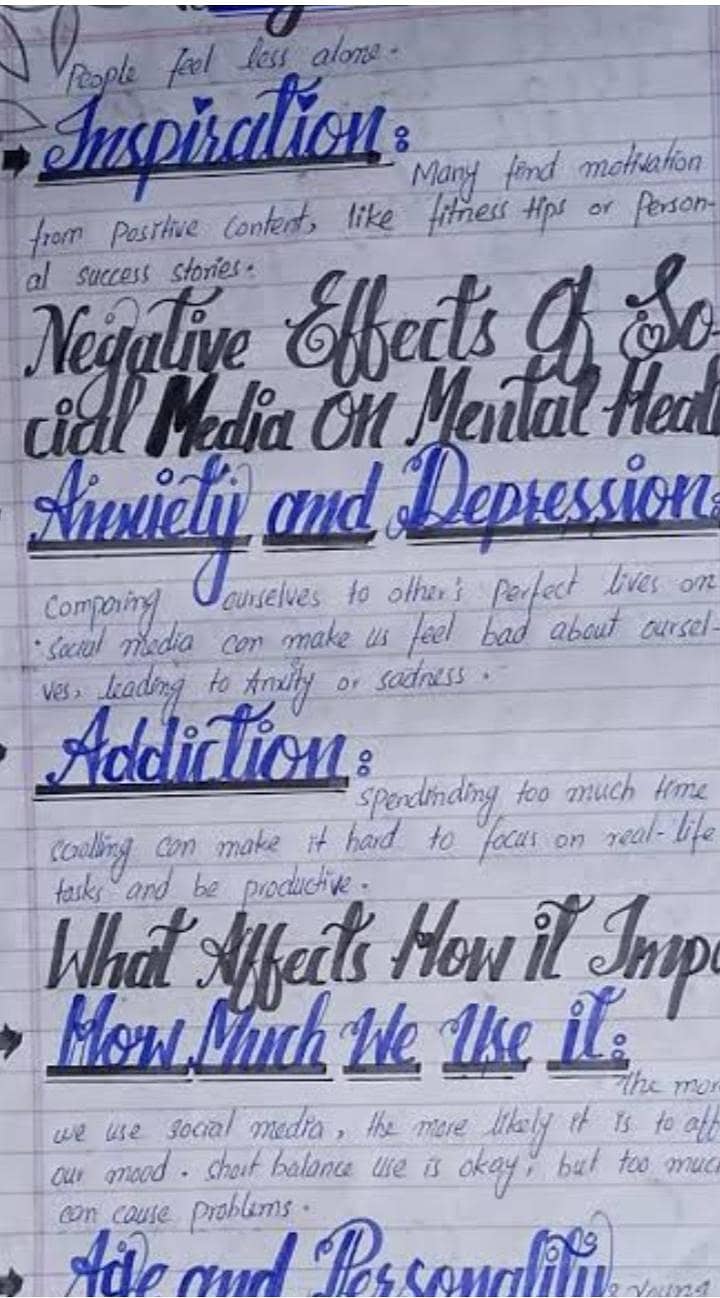 People feel less alone.
Inspiration:
Many find motivation
from positive content, like fitness tips or Person-
al success stories.
Negative Effects Of So-
cial Media On Mental Heal
Anxiety and Depression:
Comparing ourselves to other's perfect lives on
social media can make us feel bad about oursel-
ves, leading to Anxity or sadness.
Addiction:
spendinding too much time
scrolling can make it hard to focus on real-life
tasks and be productive.
What Affects How it Impa
How Much We Use it:
The mor
we use social media, the more likely it is to aff
our mood. short balance use is okay, but too muc
can cause problems.
Age and Personality:
Young